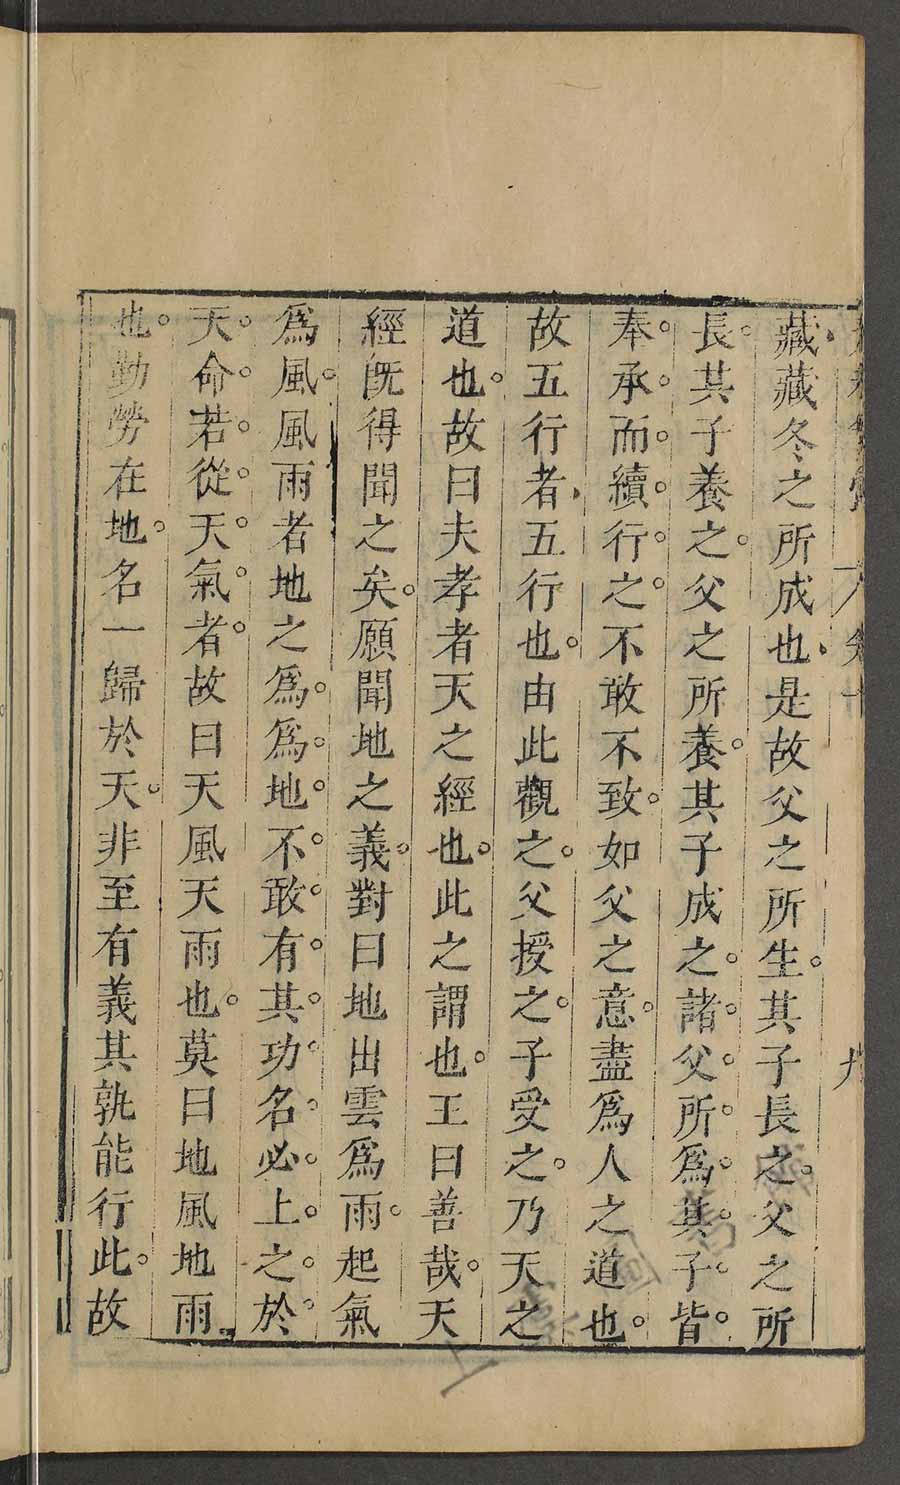 藏藏冬之所成也是故父之所生其子長之父之所
長其子養之父之所養其子成之諸父所爲其子皆
奉承而續行之不敢不致如父之意盡爲人之道也
故五行者五行也由此觀之父授之子受之乃天之
道也故曰夫孝者天之經也此之謂也王曰善哉天
經旣得聞之矣願聞地之義對曰地出雲爲雨起氣
爲風風雨者地之爲爲地不敢有其功名必上之於
天命若從天氣者故曰天風天雨也莫曰地風地雨
也勤勞在地名一歸於天非至有義其孰能行此故